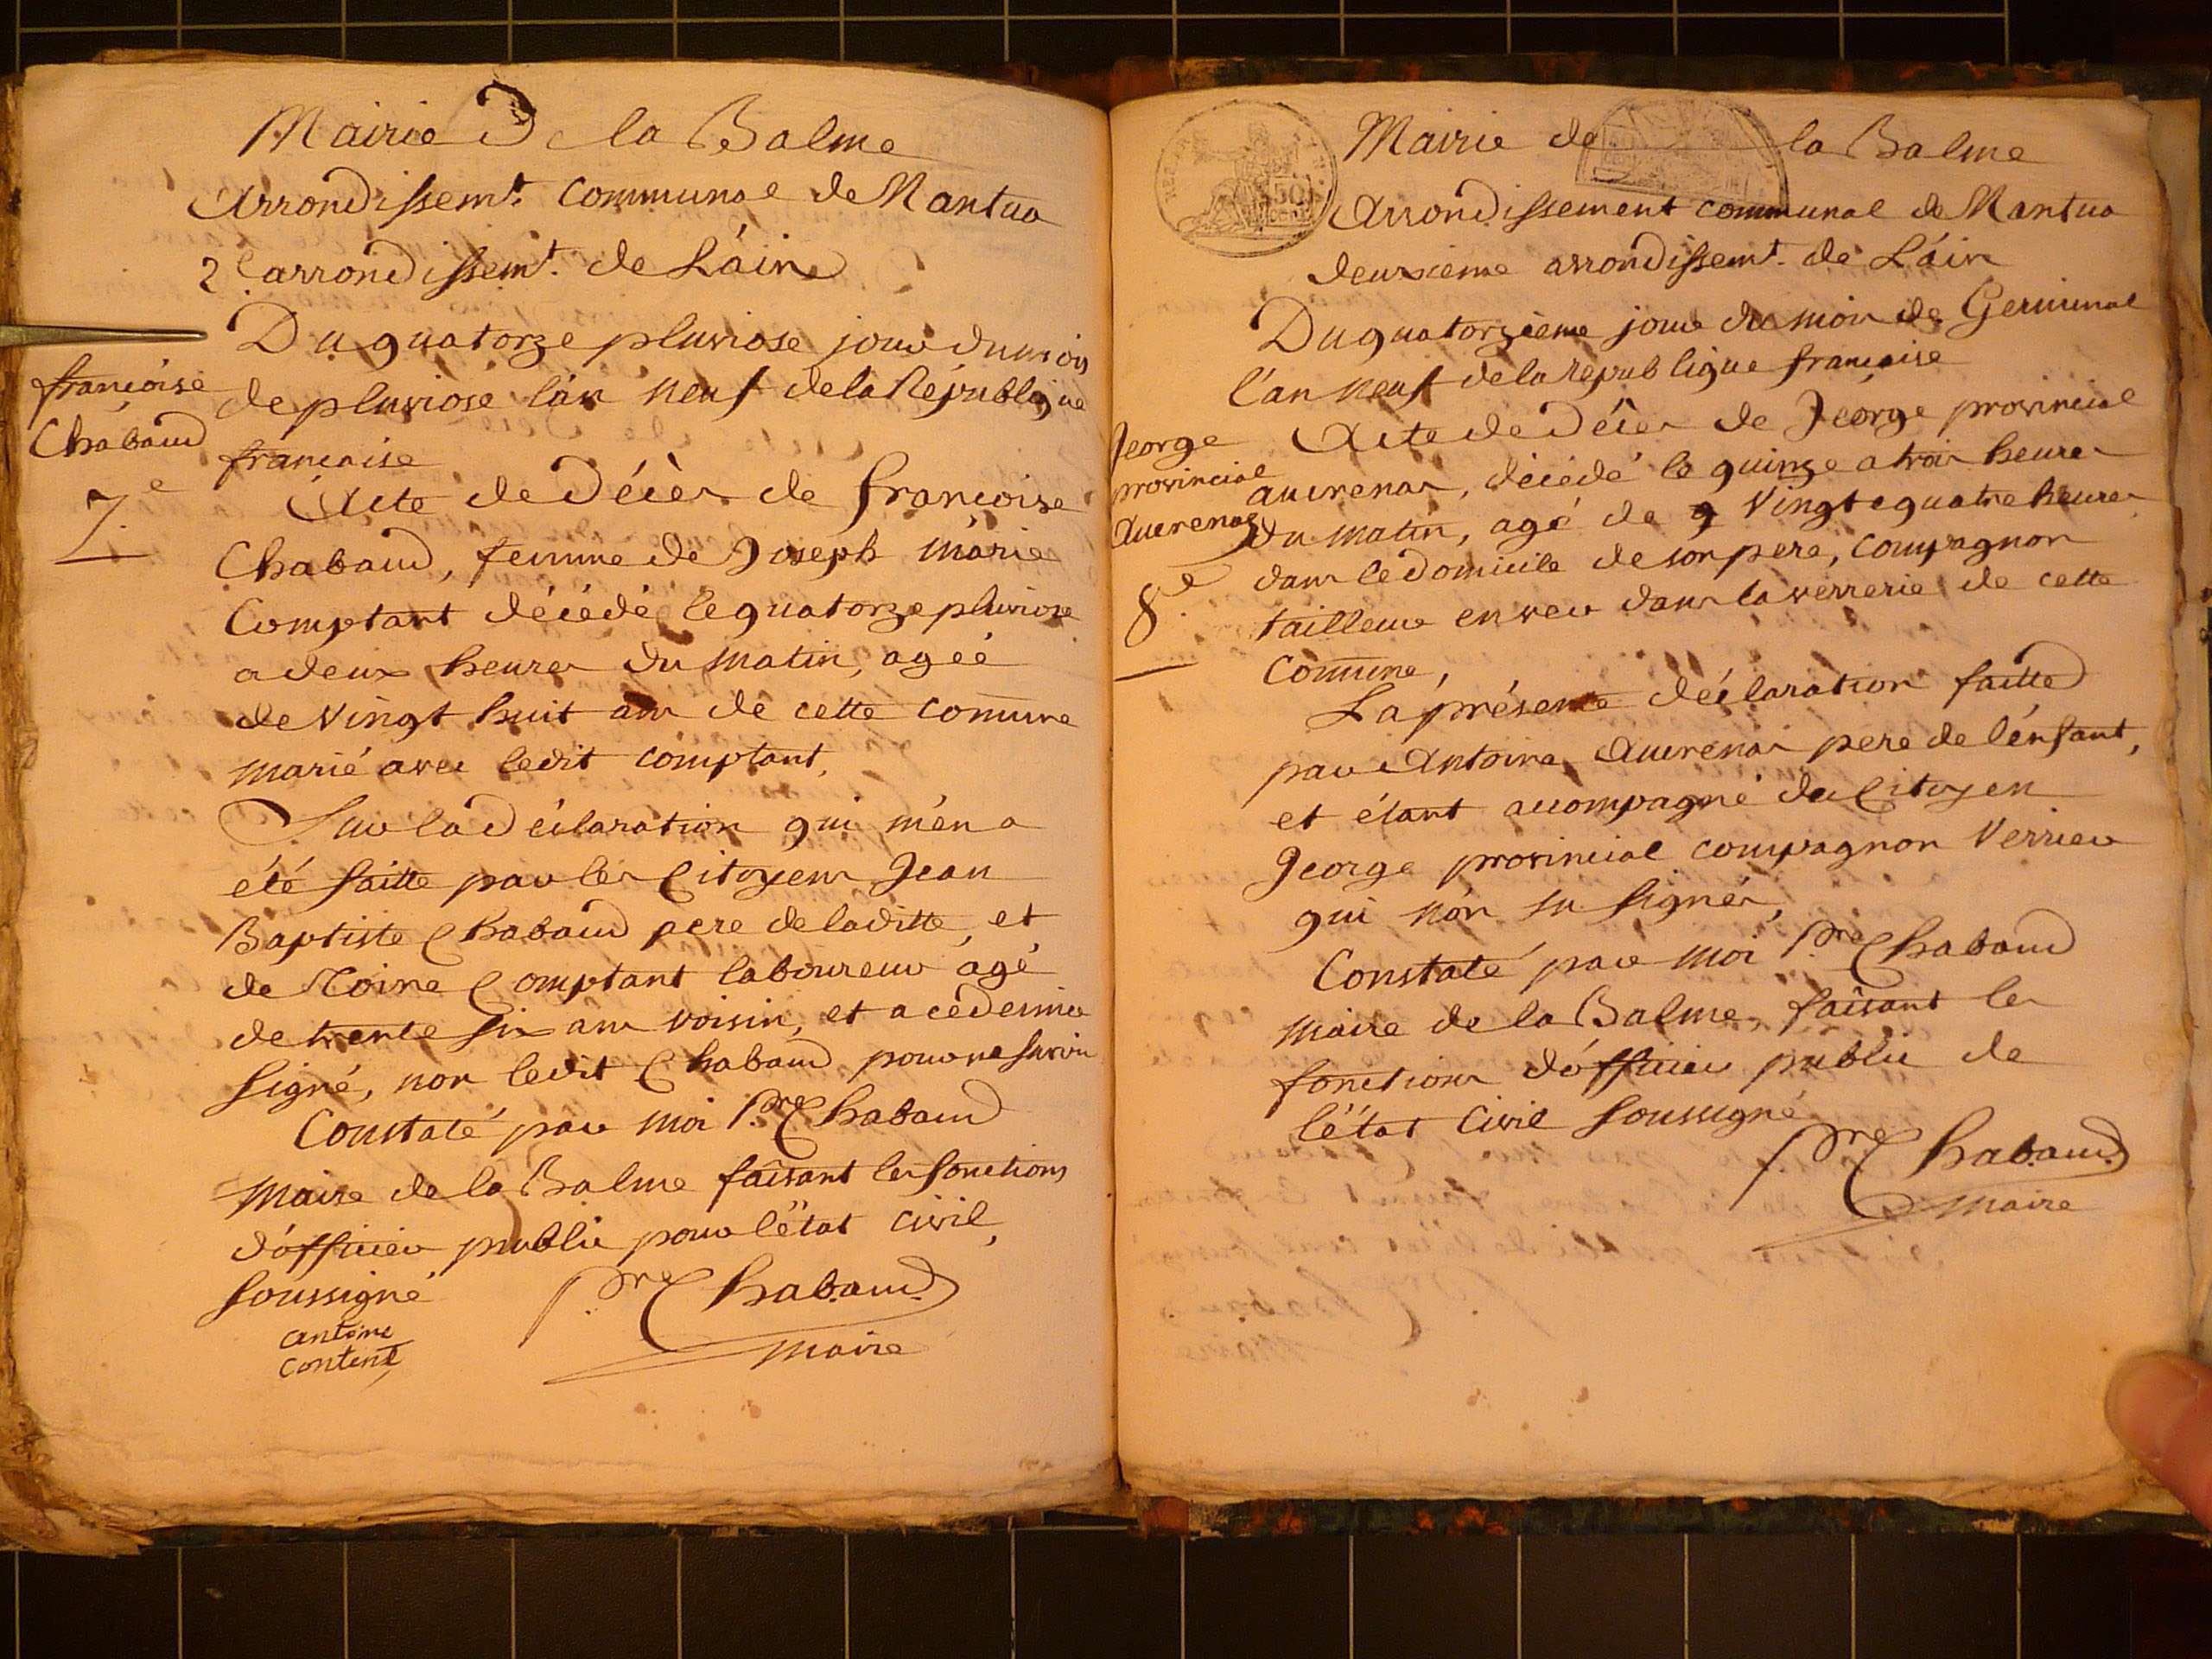 Mairie De la Balme
Arrondissemt. communal de Nantua
2e. arrondissemt. de L'ain
Du quatorze pluviose jour du mois
de pluviose l'an neuf de la République
française
françoise
Chabaud
7e
Acte de Décès de françoise
Chabaud, femme de Joseph marie
Comptant décédé le quatorze pluviose
a deux heures du matin, agéé
de vingt huit ans de cette comune
marié avec ledit comptant,
Sur la Déclaration qui m'en a
été faitte par les Citoyens Jean
Baptiste Chabaud pere de laditte, et
de Toine Comptant laboureur agé
de trente six ans voisin, et a ce dernier
signé, non ledit Chabaud pour ne savoir
Constaté par moi Pre Chabaud
maire de la Balme faisant les fonctions
d'officier public pour l'état civil,
soussigné
antoine
content
Pre Chabaud
maire
50
cent
Mairie de la Balme
Arrondissement communal de Nantua
deuxieme arrondissemt. de L'ain
Du quatorzieme jour du mois de Germinal
l'an neuf de la republique française
Jeorge
provincial
auvrenas
8e
Acte de Décès de Jeorge provincial
auvrenas, décédé le quinze a trois heures
du matin, agé de vingt equatre heures
dans le domicile de son pere, compagnon
tailleur en ver dans la verrerie de cette
comune,
La présente déclaration faitte
par Antoine Auvrenas pere de l'énfant,
et étant accompagné du Citoyen
Jeorge provincial compagnon Verrier
qui n'on su signer,
Constaté par moi Pre Chabaud
maire de la Balme, faisant les
fonctions d'officier public de
l'état Civil soussigné
Pre Chabaud
maire